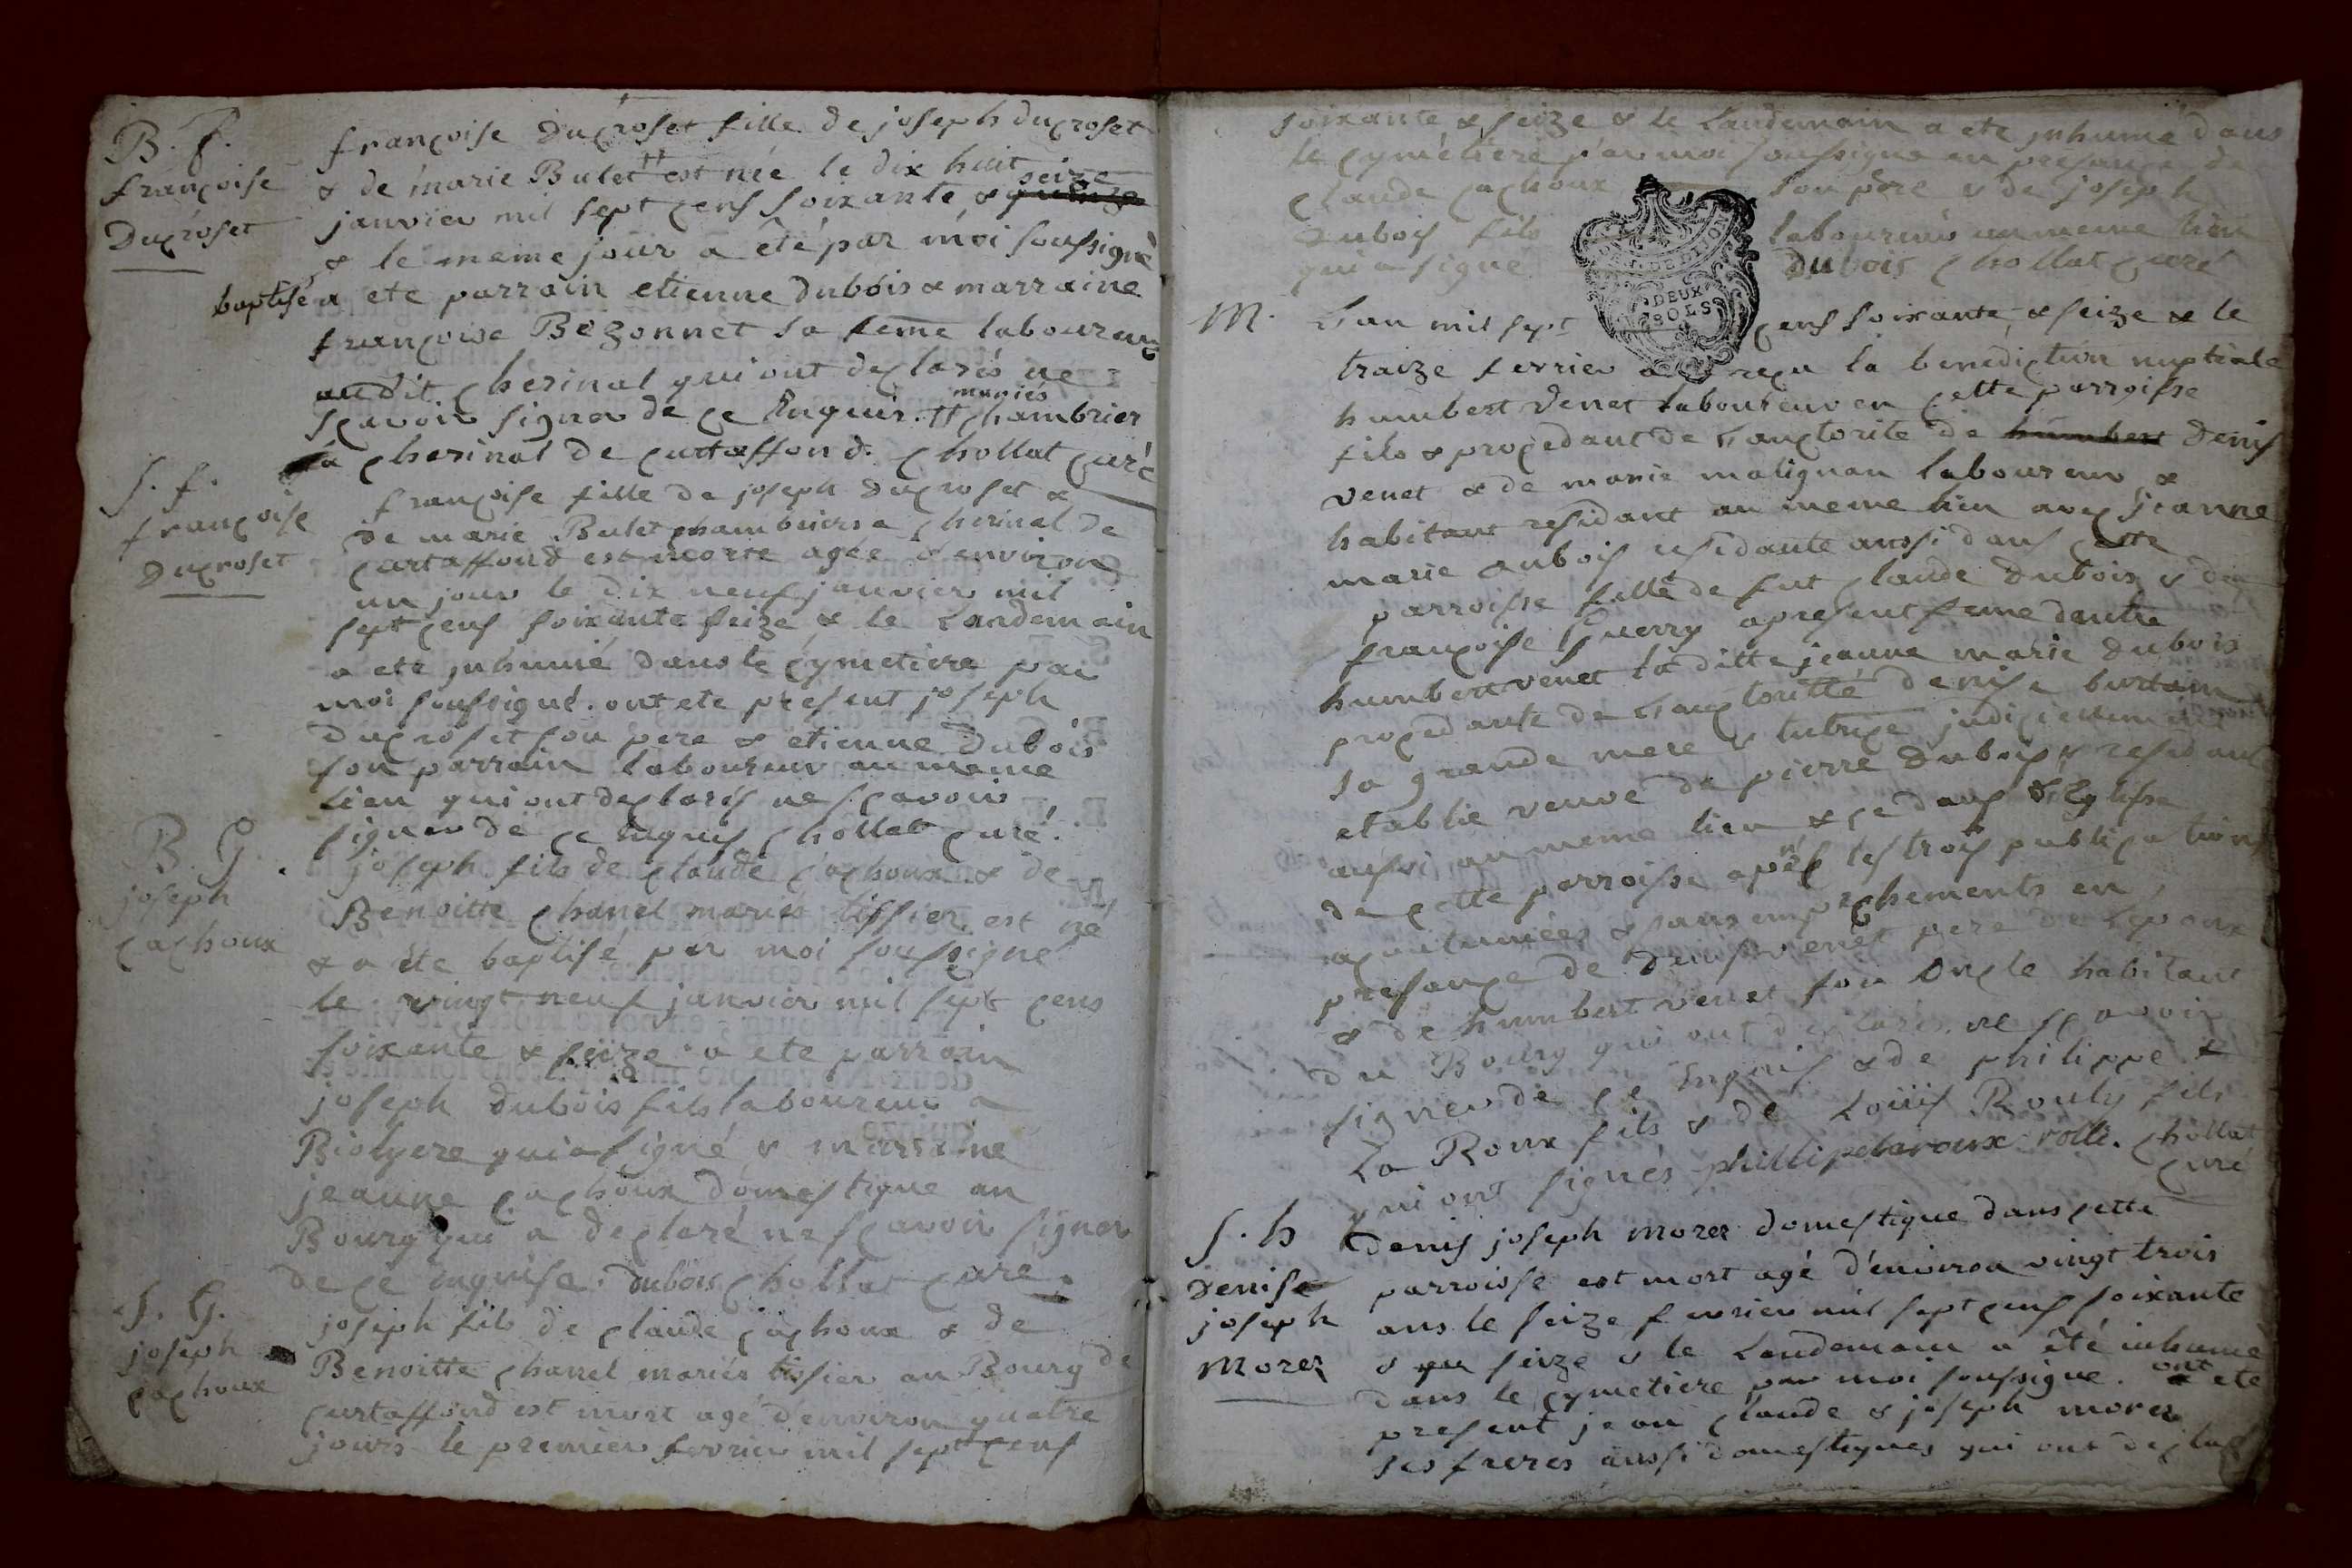 B. f.
françoise
Ducroset
françoise Ducroset fille de joseph ducroset
& de marie Bulet # est née le dix huit
janvier mil sept cens soixante & quinze seize
& le meme jour a été par moi soussigné
baptisé a ete parrain etienne dubois & marraine
françoise Bezonnet sa feme laboureurs
audit cherinal qui ont declarés ne
scavoir signer de ce Enquis. # mariés chambrier
a cherinal de curtaffond. chollat curé
S. f.
françoise
Ducroset
françoise fille de joseph Ducroset &
de marie Bulet chambriers a cherinal de
curtaffond est morte agée d'environ
un jour le dix neuf janvier mil
sept cens soixante seize & le Landemain
a ete inhumé dans le cymetiere par
moi soussigné. ont ete present joseph
Ducroset son pere & etienne Dubois
son parrain laboureur au meme
Lieu qui ont declarés ne scavoir
signer de ce enquis chollat curé.
B. G.
joseph
cachoux
joseph fils de claude cachoux & de
Benoitte chanel mariés tissier est né
& a été baptisé par moi soussigné
le vingt neuf janvier mil sept cens
soixante & seize a ete parrain
joseph Dubois fils laboureur a
Biolyere qui a signé & marraine
jeanne cachoux domestique au
Bourg qui a declaré ne scavoir signer
de ce enquise. dubois chollat curé.
S. G.
joseph
cachoux
joseph fils de claude cachoux & de
Benoitte chanel mariés tissier au Bourg de
curtaffond est mort agé d'environ quatre
jours le premier fevrier mil sept cens
soixante & seize & le Landemain a ete inhumé dans
le cymetiere par moi soussigné en presance de
claude cachoux son pere & de joseph
Dubois fils laboureur au meme lieu
qui a signé Dubois chollat curé
GEN. DE DIJON
DEUX
SOLS
M. L'an mil sept cens soixante & seize & le
traize ferrier a reçu la benediction nuptiale
humbert Venet laboureur en cette parroisse
fils & procedant de L'auctorité de humbert Denis
venet & de marie malignan laboureur &
habitant residant au meme lieu avec jeanne
marie dubois residante aussi dans cette
parroisse fille de fut claude Dubois & de
françoise Guerry apresent feme dautre
humbert venet la ditte jeanne marie dubois
procedante de L'auctorité denise
sa grande mere & tutrice judiciellement
etablie veuve de pierre Dubois & residant
aussi au meme lieu & ce dans L'Eglise
de cette parroisse après les trois publications
acoutumées & sans empechements en
presance de denis venet pere de L'epoux
& de humbert venet son oncle habitant
du Bourg qui ont declarés ne scavoir
signer de ce Enquis & de philippe
La Roux fils & de Loüis Rouly fils
qui ont signés phillipelaroux rolli. chollat
curé
S. h
Denise
joseph
Morez
denis joseph morez domestique dans cette
parroisse est mort agé d'environ vingt trois
ans le seize fevrier mil sept cens soixante
& seize & le Landemain a été inhumé
dans le cymetiere par moi soussigné. ont ete
present jean claude & joseph morez
ses freres aussi domestiques qui ont declaré